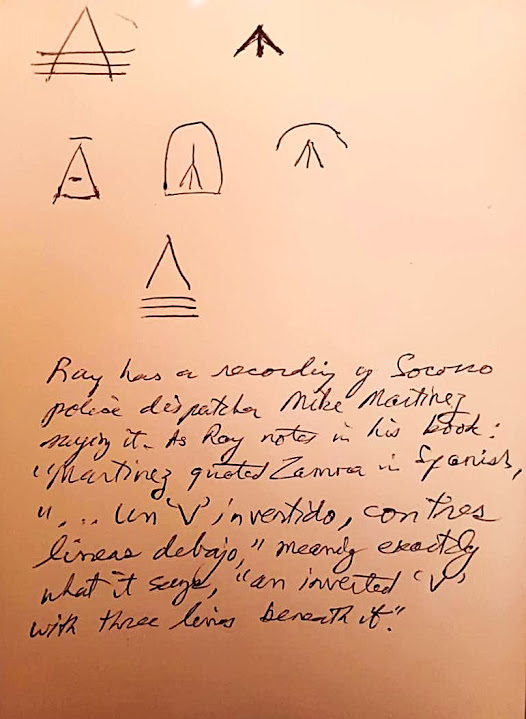 Ray has a recording of Socorro
police dispatcher Mike Martinez
saying it. As Ray notes in his book:
"Martinez quoted Zamora in Spanish,
"... un 'V' invertido, con tres
líneas debajo," meaning exactly
what it says, "an inverted 'V'
with three lines beneath it".